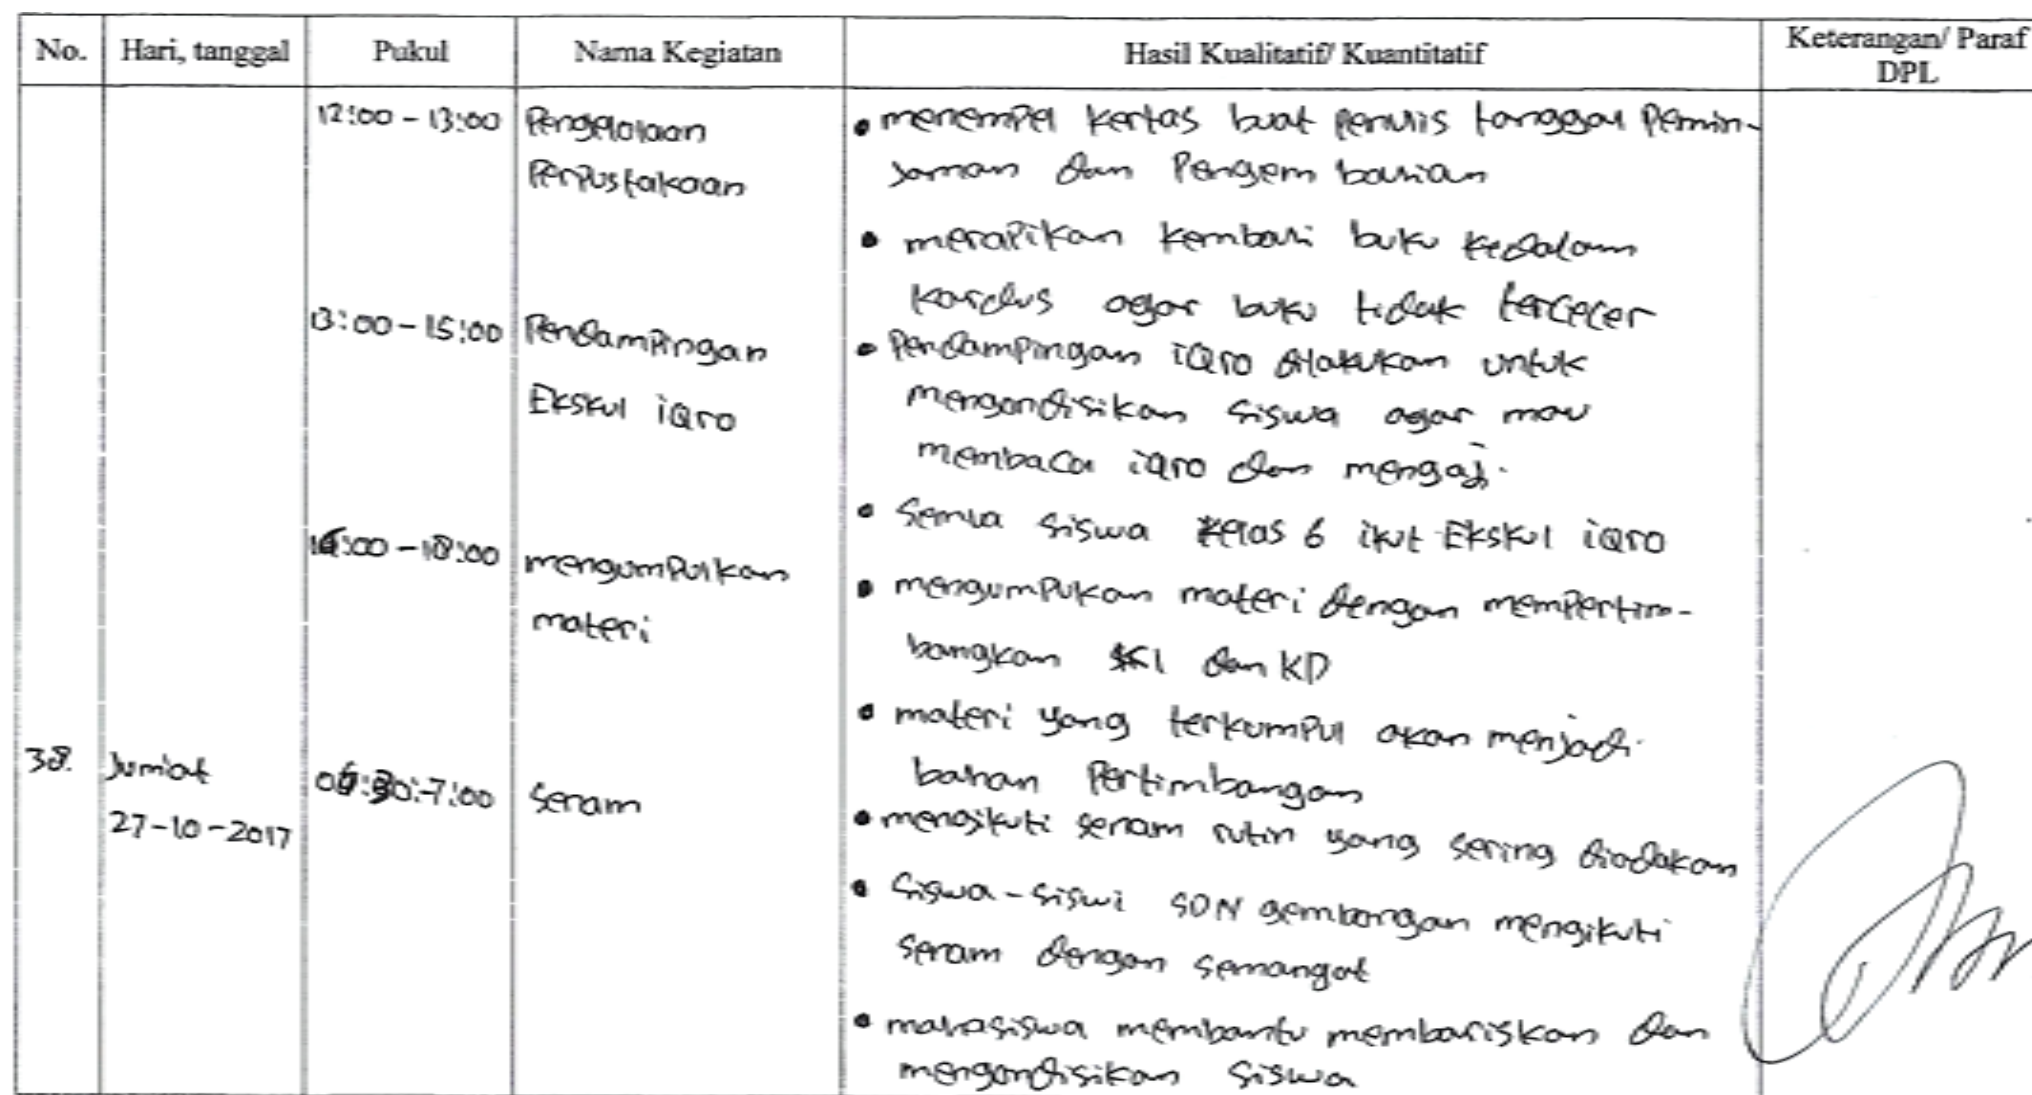 No. Hari, tanggal Pukul Nama Kegiatan Hasil Kualitatif/ Kuantitatif Keterangan/ Paraf DPL
12:00 - 13:00 Pengelolaan Perpustakaan
• menempel kertas buat penulis tanggal Pemin-
Jaman dan Pengembalian
• merapikan kembali buku kedalam
kardus agar buku tidak tercecer
13:00 - 15:00 Pendampingan Ekskul iqro
• Pendampingan iqro dilakukan untuk
mengondisikan siswa agar mau
membaca iqro dan mengaji.
• Semua siswa kelas 6 ikut Ekskul iqro
16:00 - 18:00 mengumpulkan materi
• mengumpukan materi dengan mempertim-
bangkan dan KD
• materi yang terkumpul akan menjadi
bahan Pertimbangan
38. Jum'at 27-10-2017
7:00 Senam
• mengikuti senam rutin yang sering diadakan
• Siswa-siswi SDN gembongan mengikuti
senam dengan semangat
• mahasiswa membantu membariskan dan
mengondisikan siswa